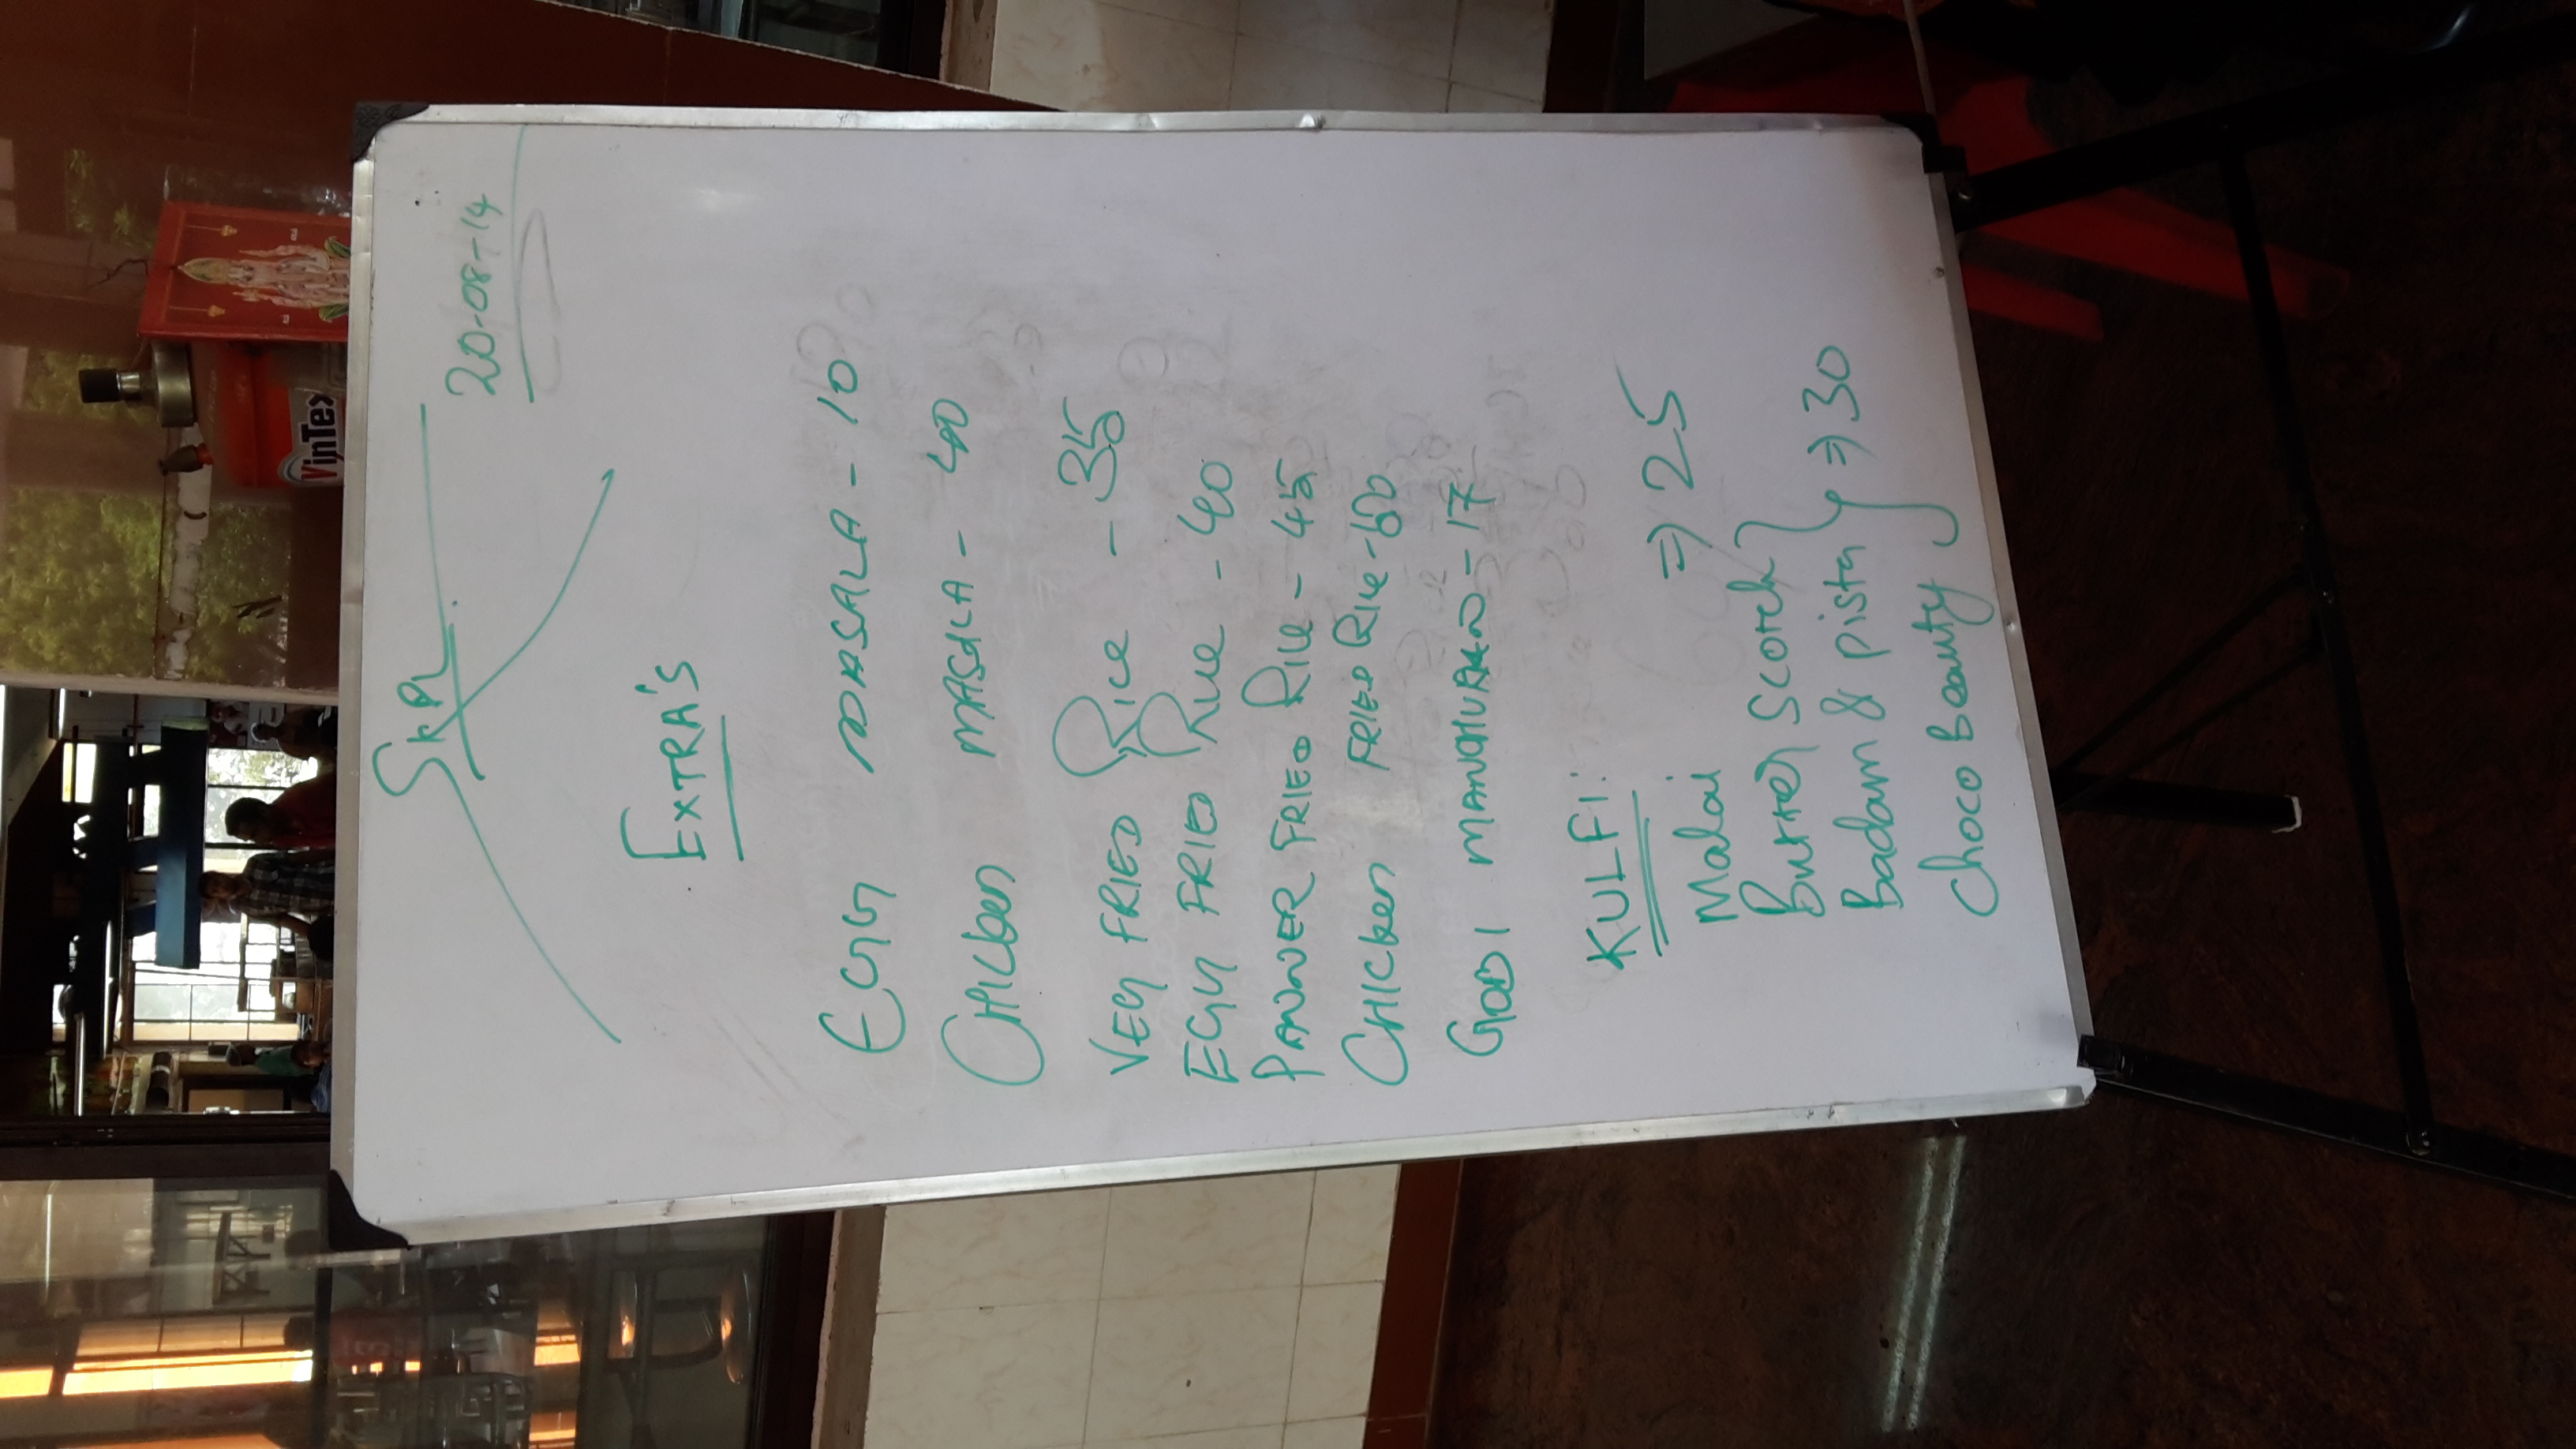 VinTex
SKPL
20-08-14
EXTRA'S
EGG MASALA - 10
CHICken MASALA - 40
VEG FRIED Rice - 35
EGG FRIED Rice - 40
PANNER FRIED Rice - 45
CHICken FRIED Rice - 60
GOBI MANCHURIAN - 17
KULFI:
Malai ⇒ 25
Butter Scotch
Badam & pista ⇒ 30
Choco Beauty